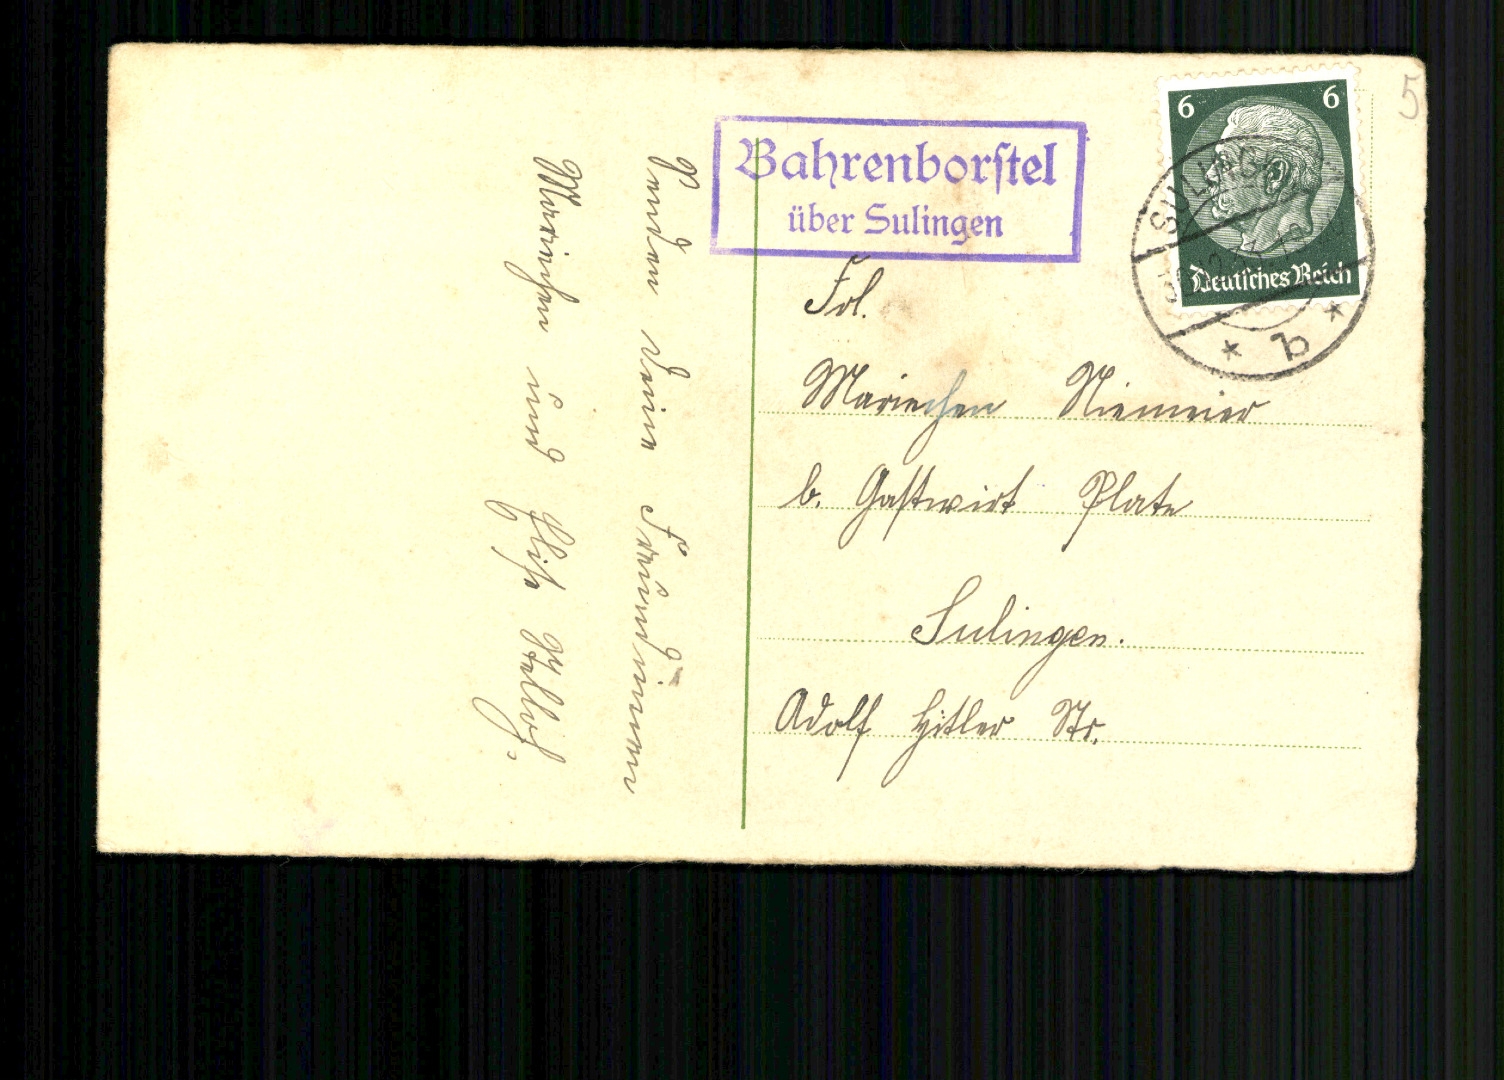 Bahrenborstel
über Sulingen
6 6
Deutsches Reich
SULINGEN
b
5
Frl.
Mariechen Niemeier
b. Gastwirt Plate
Sulingen.
Adolf Hitler Str.
Senden deine Freundinnen
Mariechen und